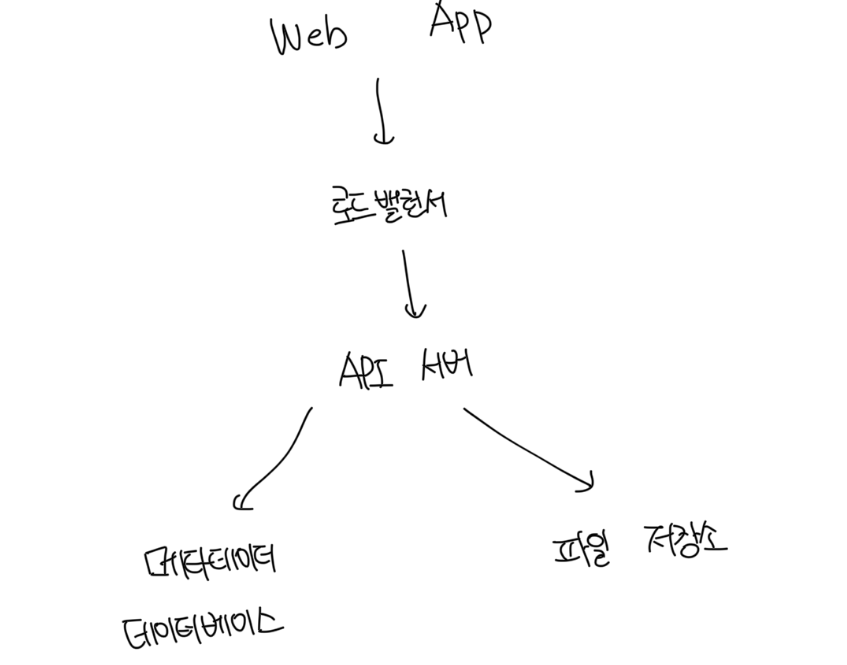 Web App
로드밸런서
API 서버
메타데이터
데이터베이스
파일 저장소